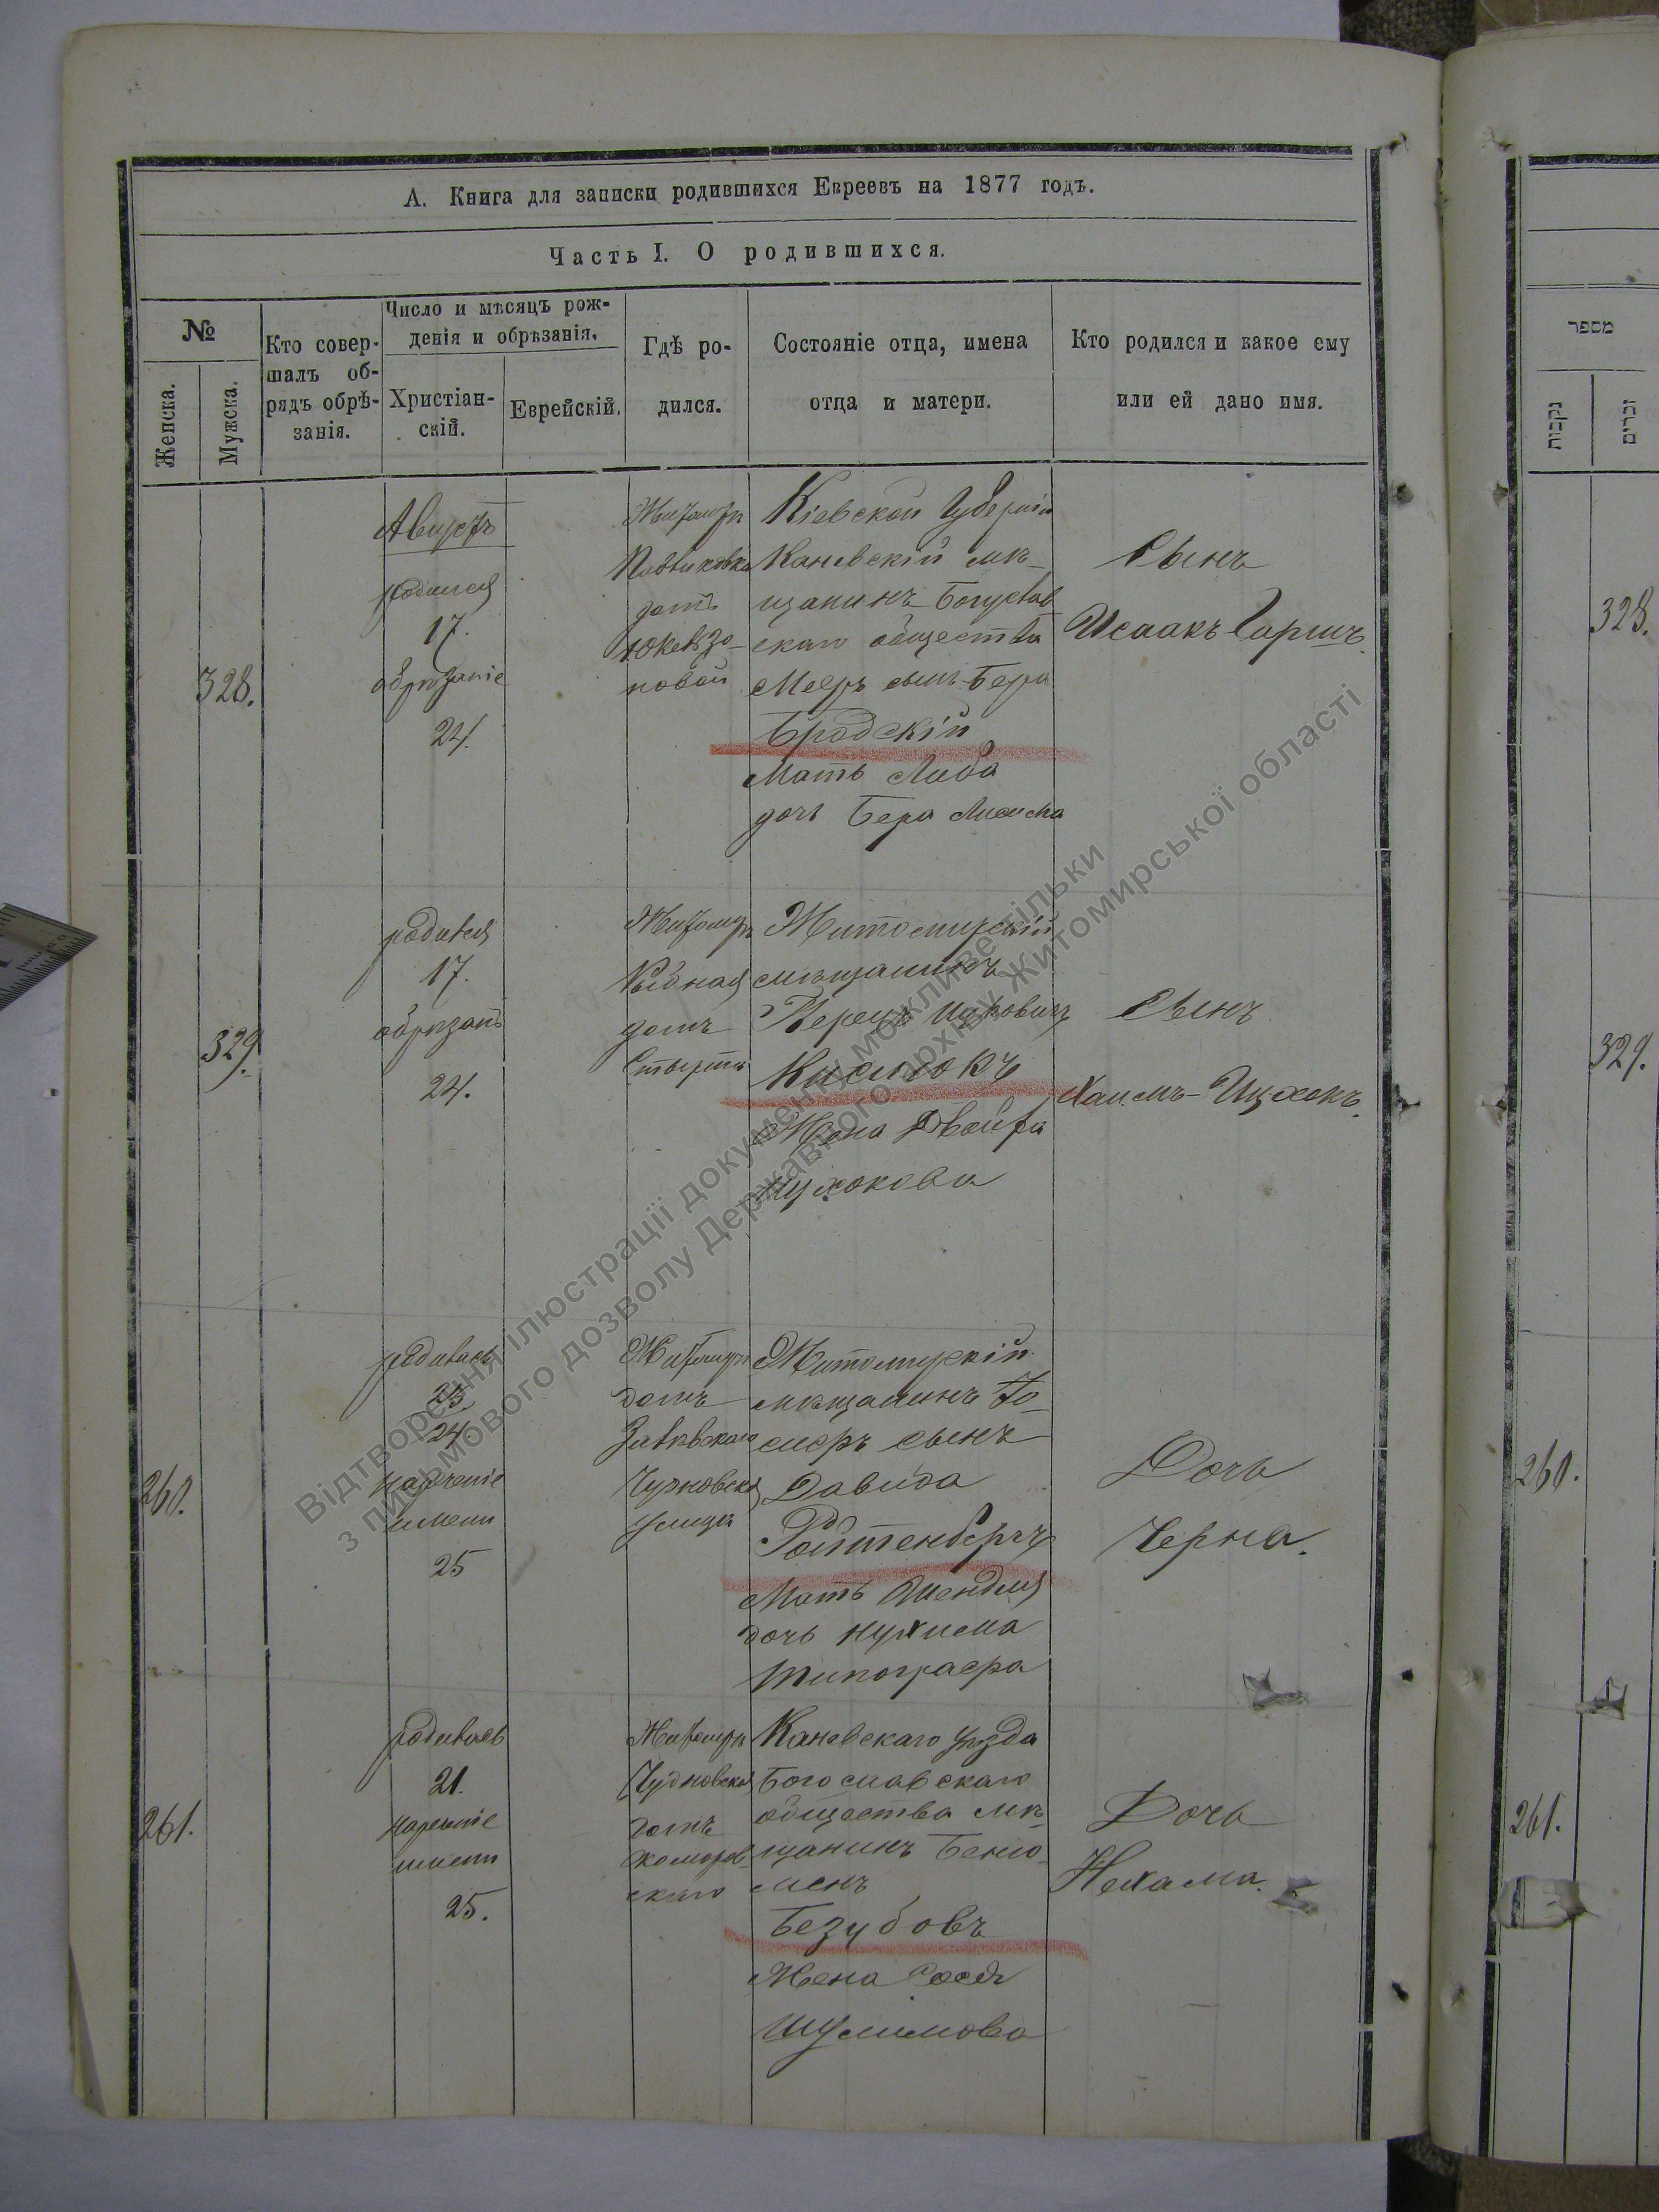 А. Книга для записки родившихся Евреевъ на 1877 годъ.
Часть I. О родившихся.
№
Женска.
Мужска.
Кто совер-
шалъ об-
рядъ обрѣ-
занія.
Число и мѣсяцъ рож-
денія и обрѣзанія.
Христіан-
скій.
Еврейскій.
Гдѣ ро-
дился.
Состояніе отца, имена
отца и матери.
Кто родился и какое ему
или ей дано имя.
328.
Августъ
родился
17.
обрѣзаніе
24.
Житомръ
домъ
Кіевской Губерніи
Каневскій мѣ-
щанинъ Богуслав
скаго общества
Мееръ сынъ Бера
Бродскій
Мать Либа
дочь Бера
Сынъ
Исаакъ Гершъ.
329.
родился
17.
обрѣзанъ
24.
Житомръ
Рыбная
домъ
Житомирскій
мѣщанинъ
Перецъ Ицковичъ
Кислюкъ
Жена Двойра
Ицхокова
Сынъ
Хаимъ-Ицхокъ.
260.
родилась
23.
24.
нареченіе
имени
25
Житомръ
домъ
Чудновская
улица
Житомирскій
мѣщанинъ Го-
меръ сынъ
Давида
Ройтенбергъ
Мать Шендля
дочь Нухима
Типографа
Дочь
Черна.
261.
родилась
21.
нареченіе
имени
25.
Житомръ
Чудновская
домъ
Каневскаго уѣзда
Богославскаго
общества мѣ-
щанинъ Беню-
менъ
Безубовъ
Жена Сося
Шулимова
Дочь
Нехама.
מספר
נקבות
זכרים
328.
329.
260.
261.
Відтворення ілюстрації документу можливе тільки
з письмового дозволу Державного архіву Житомирської області